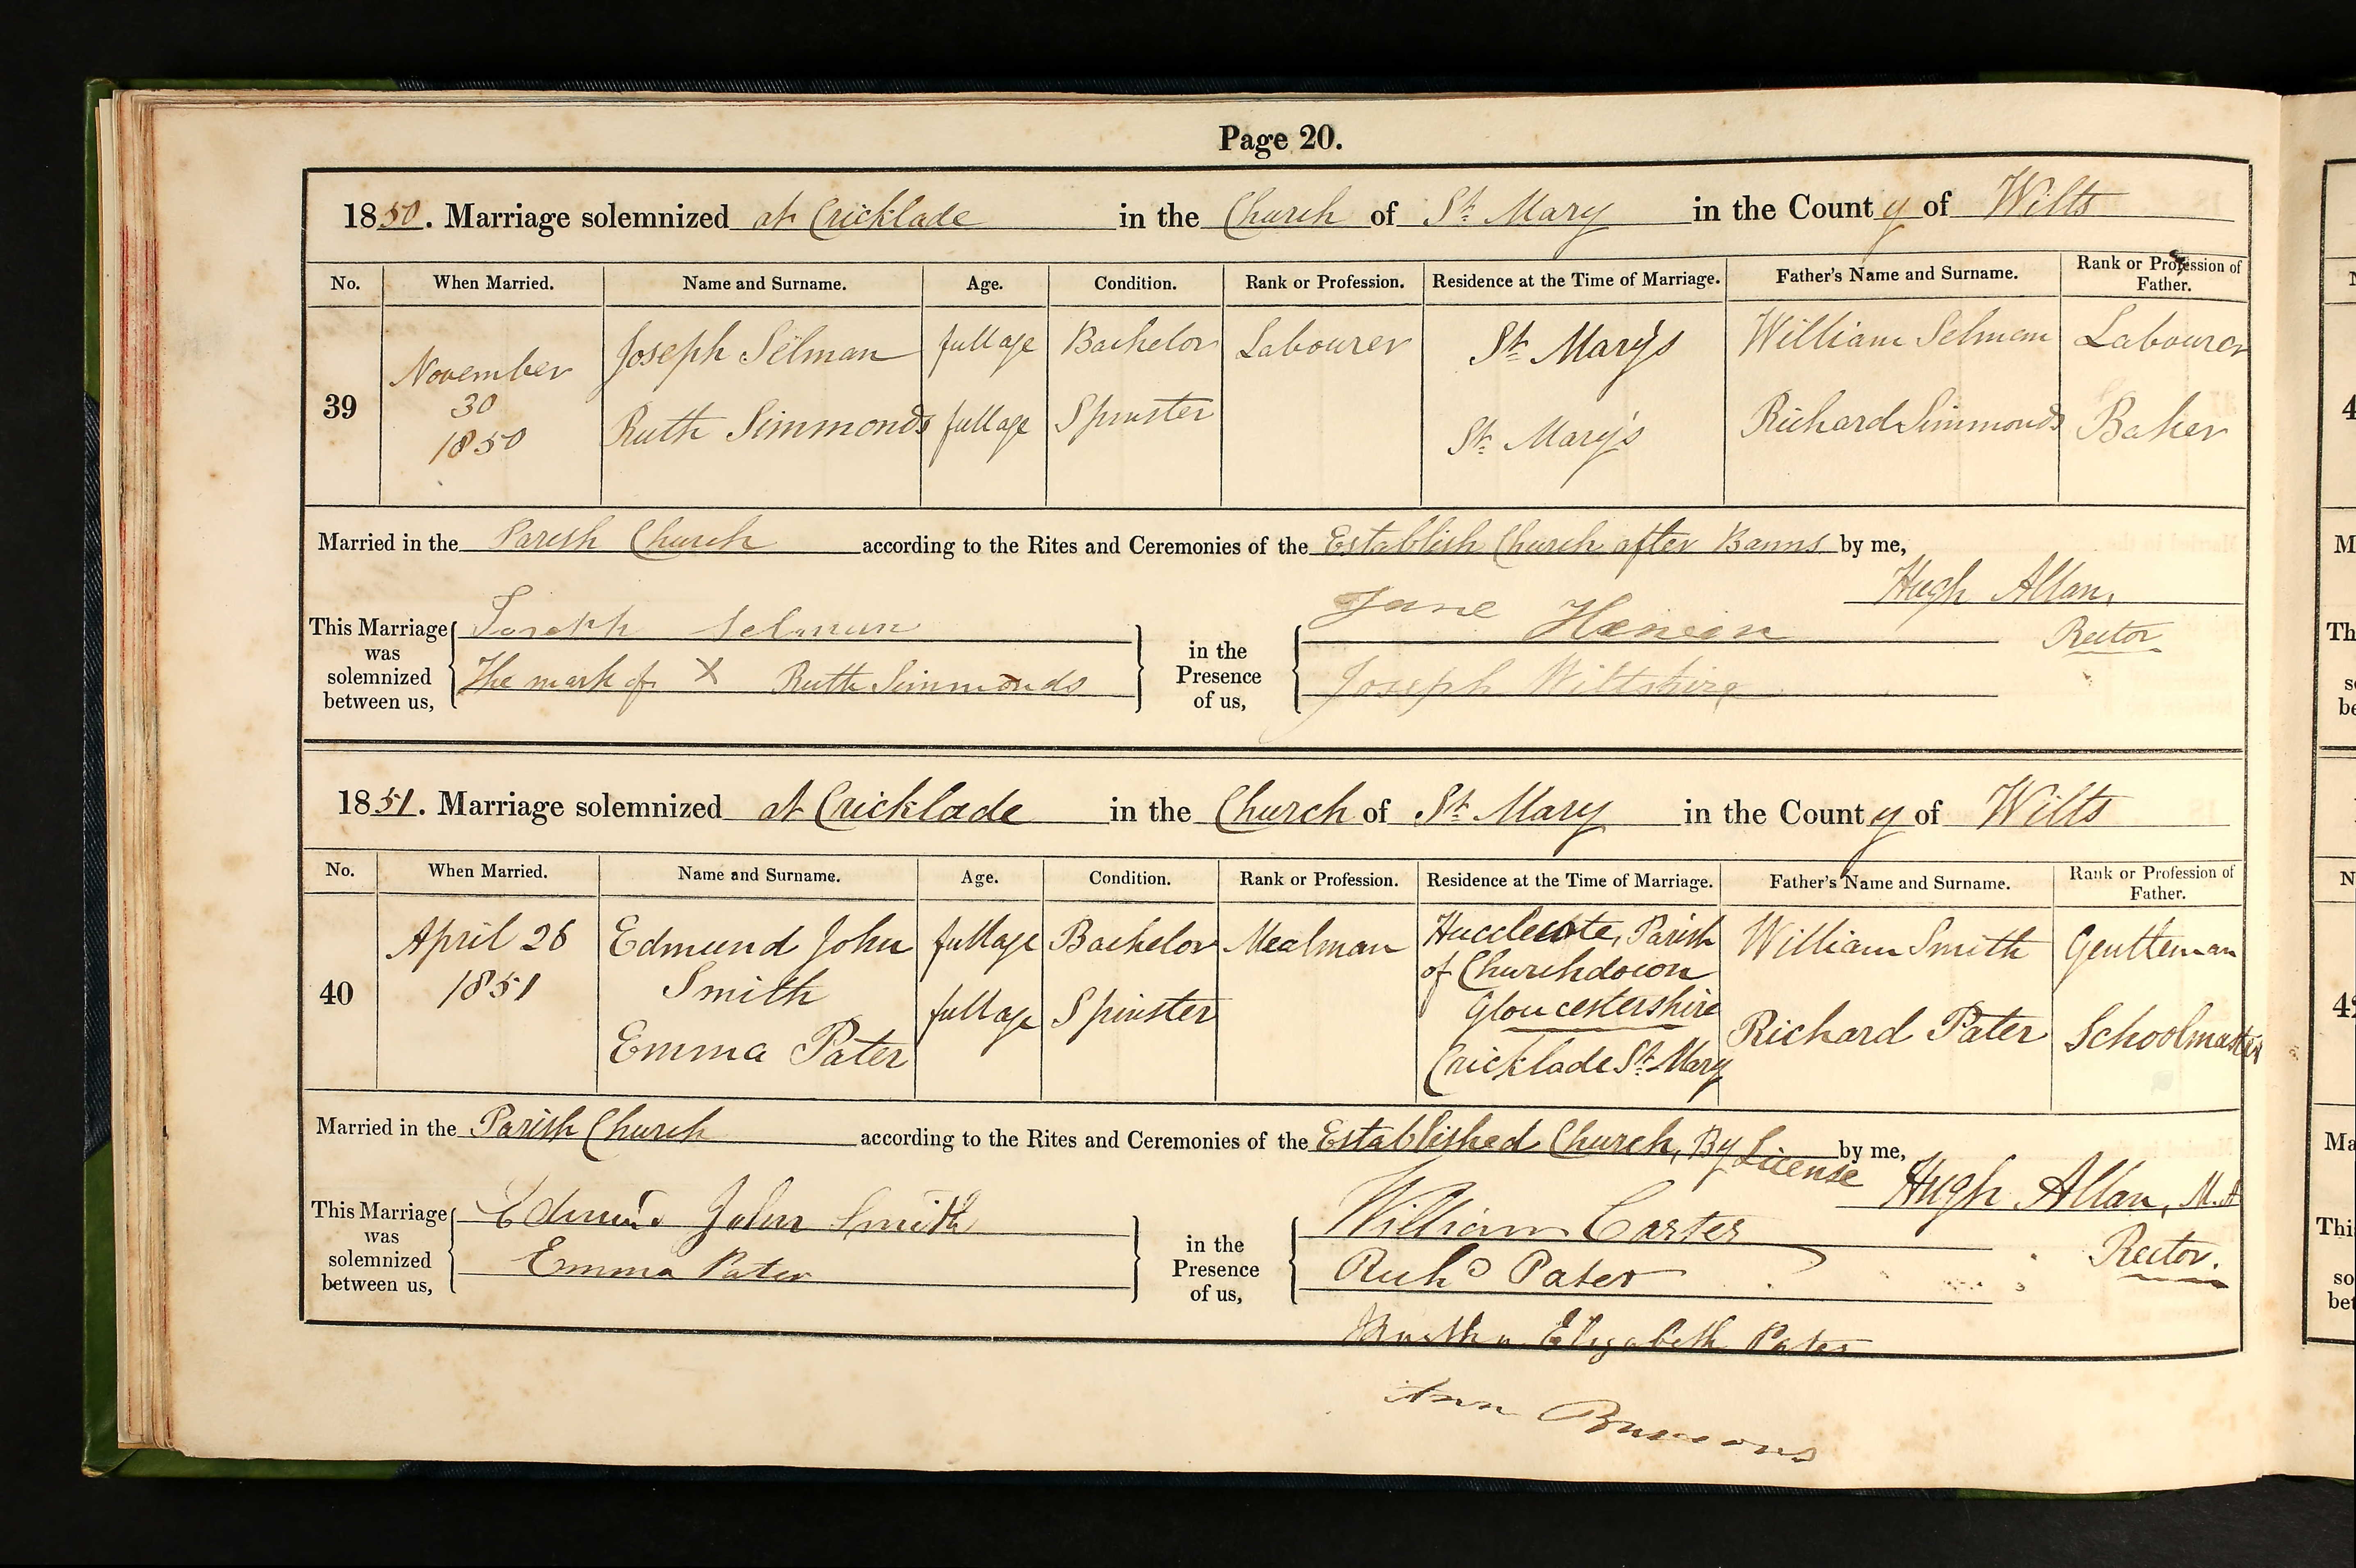 Page 20.
1850. Marriage solemnized at Cricklade in the Church of St. Mary in the County of Wilts
No. When Married. Name and Surname. Age. Condition. Rank or Profession. Residence at the Time of Marriage. Father's Name and Surname. Rank or Profession of Father.
39 November 30 1850 Joseph Selman full age Bachelor Labourer St. Mary's William Selman Labourer
Ruth Simmonds full age Spinster St. Mary's Richard Simmonds Baker
Married in the Parish Church according to the Rites and Ceremonies of the Establish Church after Banns by me,
Hugh Allan,
Rector
This Marriage was solemnized between us,
Joseph Selman
The mark of X Ruth Simmonds
in the Presence of us,
Jane
Joseph Wiltshire
1851. Marriage solemnized at Cricklade in the Church of St. Mary in the County of Wilts
No. When Married. Name and Surname. Age. Condition. Rank or Profession. Residence at the Time of Marriage. Father's Name and Surname. Rank or Profession of Father.
40 April 26 1851 Edmund John Smith full age Bachelor Mealman Hucclecote, Parish of Churchdown Gloucestershire William Smith Gentleman
Emma Pater full age Spinster Cricklade St. Mary Richard Pater Schoolmaster
Married in the Parish Church according to the Rites and Ceremonies of the Established Church, By License by me,
Hugh Allan, M.A
Rector.
This Marriage was solemnized between us,
Edmund John Smith
Emma Pater
in the Presence of us,
William Carter
Richd Pater
Martha Elizabeth Pater
Ann